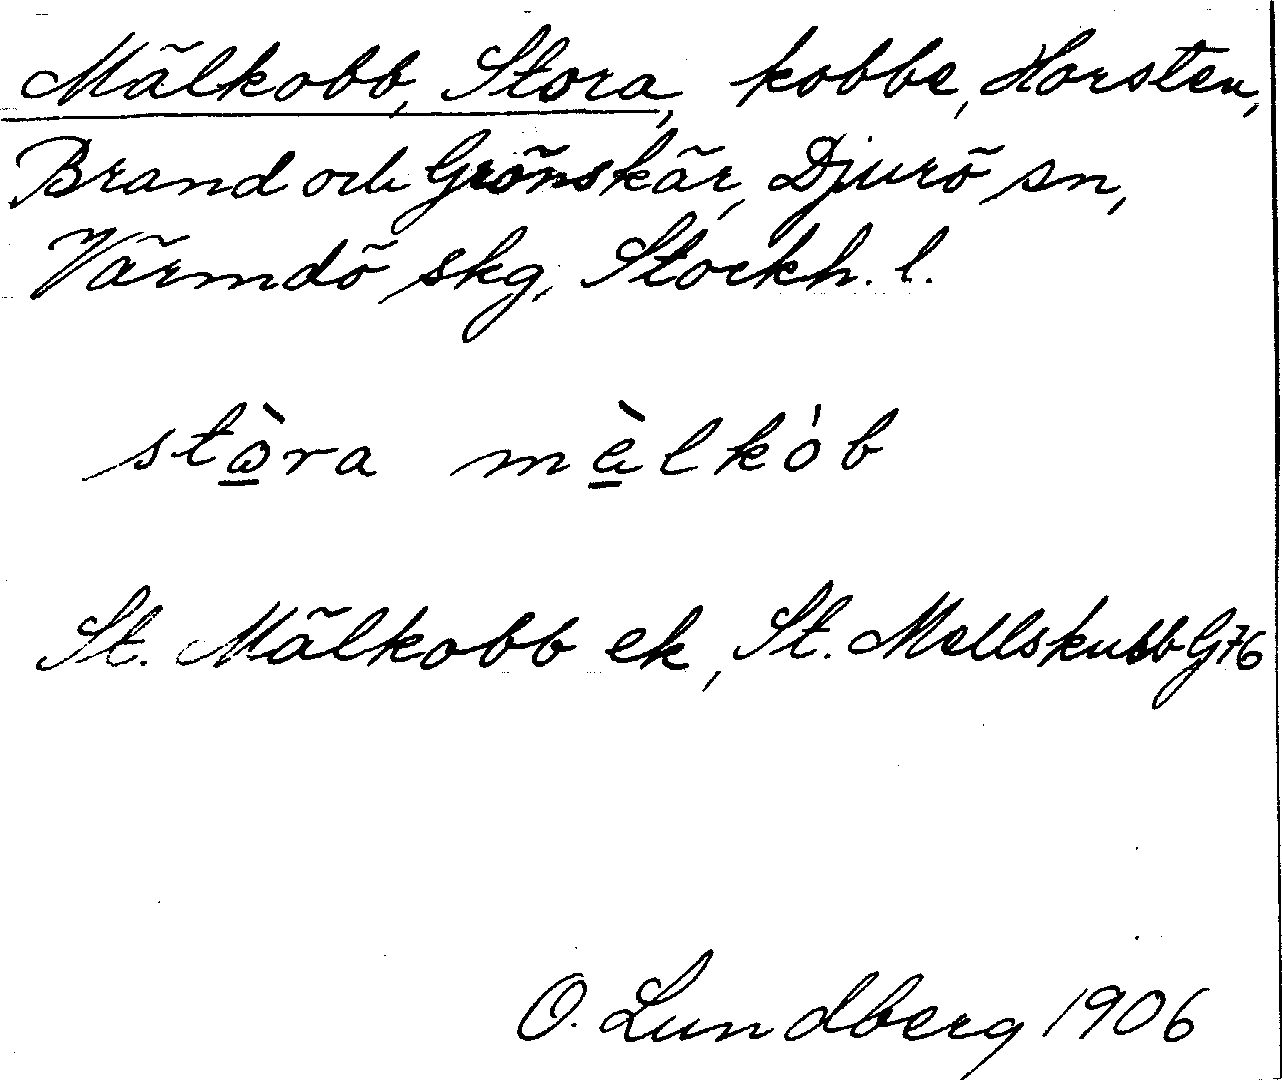 Mälkobb, Stora, kobbe, Horsten,
Brand och Grönskär, Djurö sn,
Värmdö skg, Stockh. l.
stòra mèlkȯb
St. Mälkobb ek, St. Mellskubb G76
O. Lundberg 1906